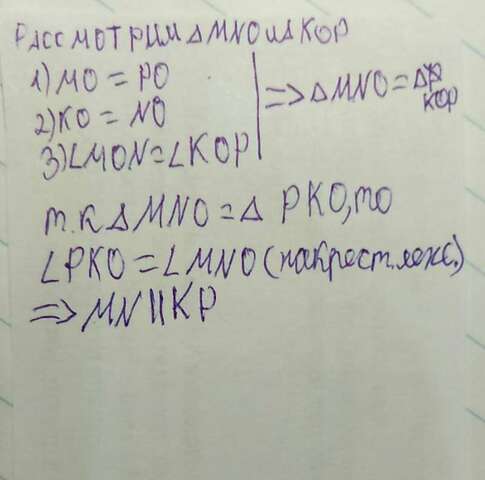 РАССМОТРИМ ΔMNO и Δ KOP
1) MO = PO
2) KO = NO
3) ∠MON = ∠KOP
=> ΔMNO = Δ
KOP
т.к Δ MNO = Δ PKO, то
∠PKO = ∠MNO (накрест леж.)
=> MN || KP